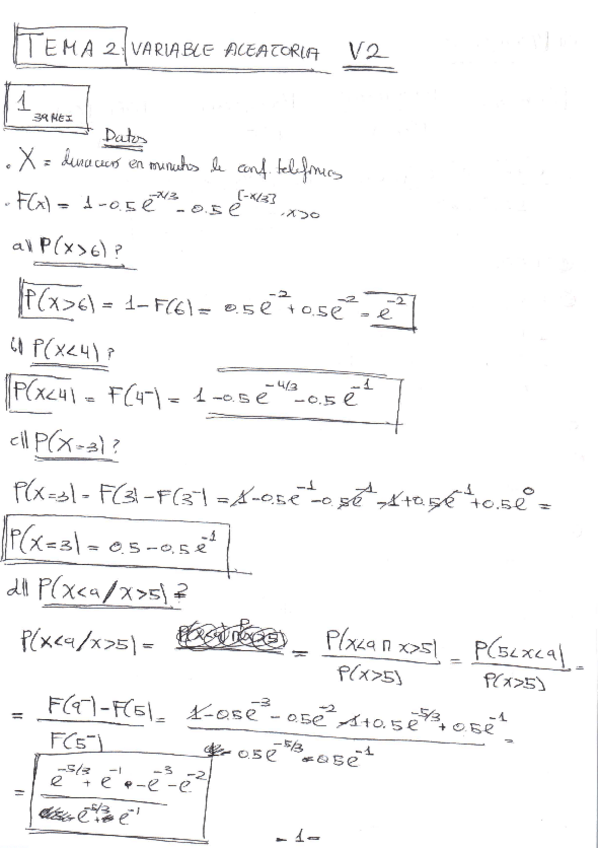 TEMA 2 VARIABLE ALEATORIA V2
1
39 MEI
Datos
. X = duracion en minutos de conf. telefonicas
. F(x) = 1-0.5e^{-x/3} - 0.5e^{[-x/3]} , x>0
a) P(x>6)?
P(x>6) = 1-F(6) = 0.5e^{-2} + 0.5e^{-2} = e^{-2}
b) P(x<4)?
P(x<4) = F(4^-) = 1-0.5e^{-4/3} - 0.5e^{-1}
c) P(x=3)?
P(x=3) = F(3) - F(3^-) = 1-0.5e^{-1} - 0.5e^{-1} - 1+0.5e^{-1} + 0.5e^{0} =
P(x=3) = 0.5 - 0.5e^{-1}
d) P(x<9/x>5)?
P(x<9/x>5) = = P(x<9 ∩ x>5) / P(x>5) = P(5<x<9) / P(x>5) =
= F(9^-) - F(5) / F(5^-) = 1-0.5e^{-3} - 0.5e^{-2} - 1+0.5e^{-5/3} + 0.5e^{-1} / 0.5e^{-5/3} 0.5e^{-1} =
= e^{-5/3} + e^{-1} - e^{-3} - e^{-2} / e^{-5/3} + e^{-1}
- 1 -